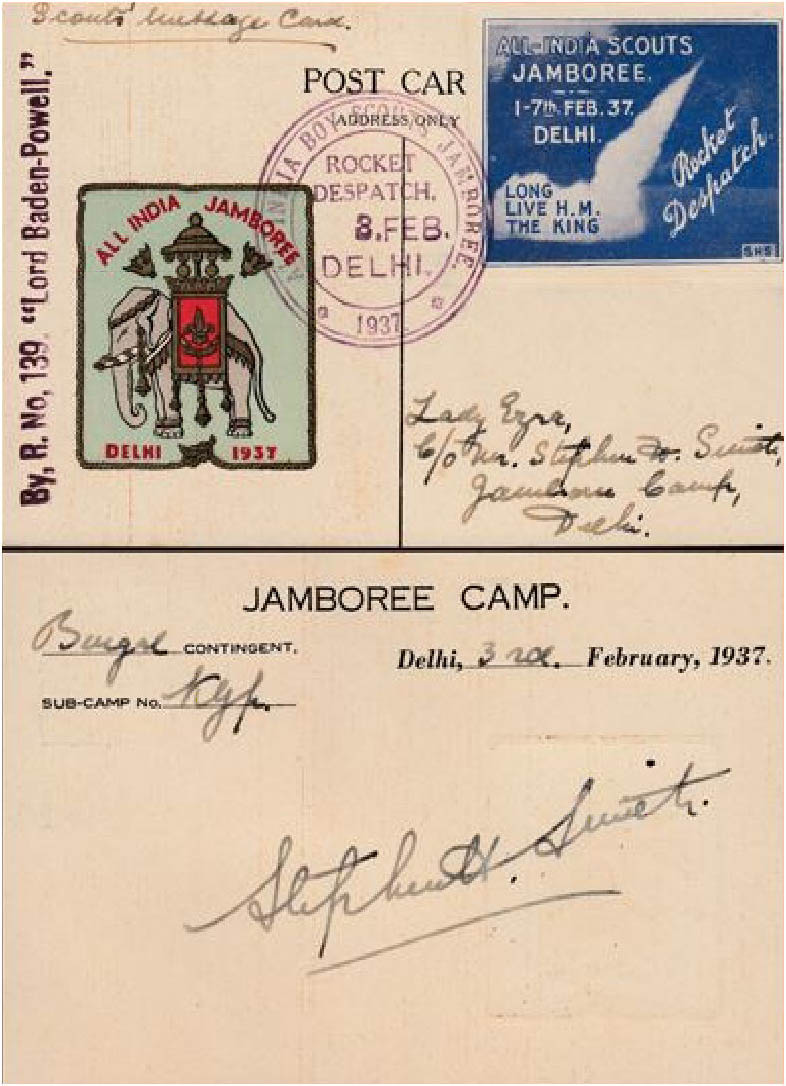 Scouts' Message Card.
POST CAR
(ADDRESS ONLY
By, R. No, 139. "Lord Baden-Powell,"
ALL INDIA JAMBOREE
DELHI 1937
INDIA BOY SCOUTS JAMBOREE.
ROCKET
DESPATCH.
3.FEB.
DELHI.
1937
ALL-INDIA SCOUTS
JAMBOREE.
1-7th. FEB. 37.
DELHI.
Rocket
Despatch.
LONG
LIVE H.M.
THE KING
SHS
Lady Ezra,
C/o Mr. Stephen H. Smith,
Jamboree Camp,
Delhi.
JAMBOREE CAMP.
Bengal CONTINGENT.
Delhi, 3rd. February, 1937.
SUB-CAMP No.
Stephen H. Smith.